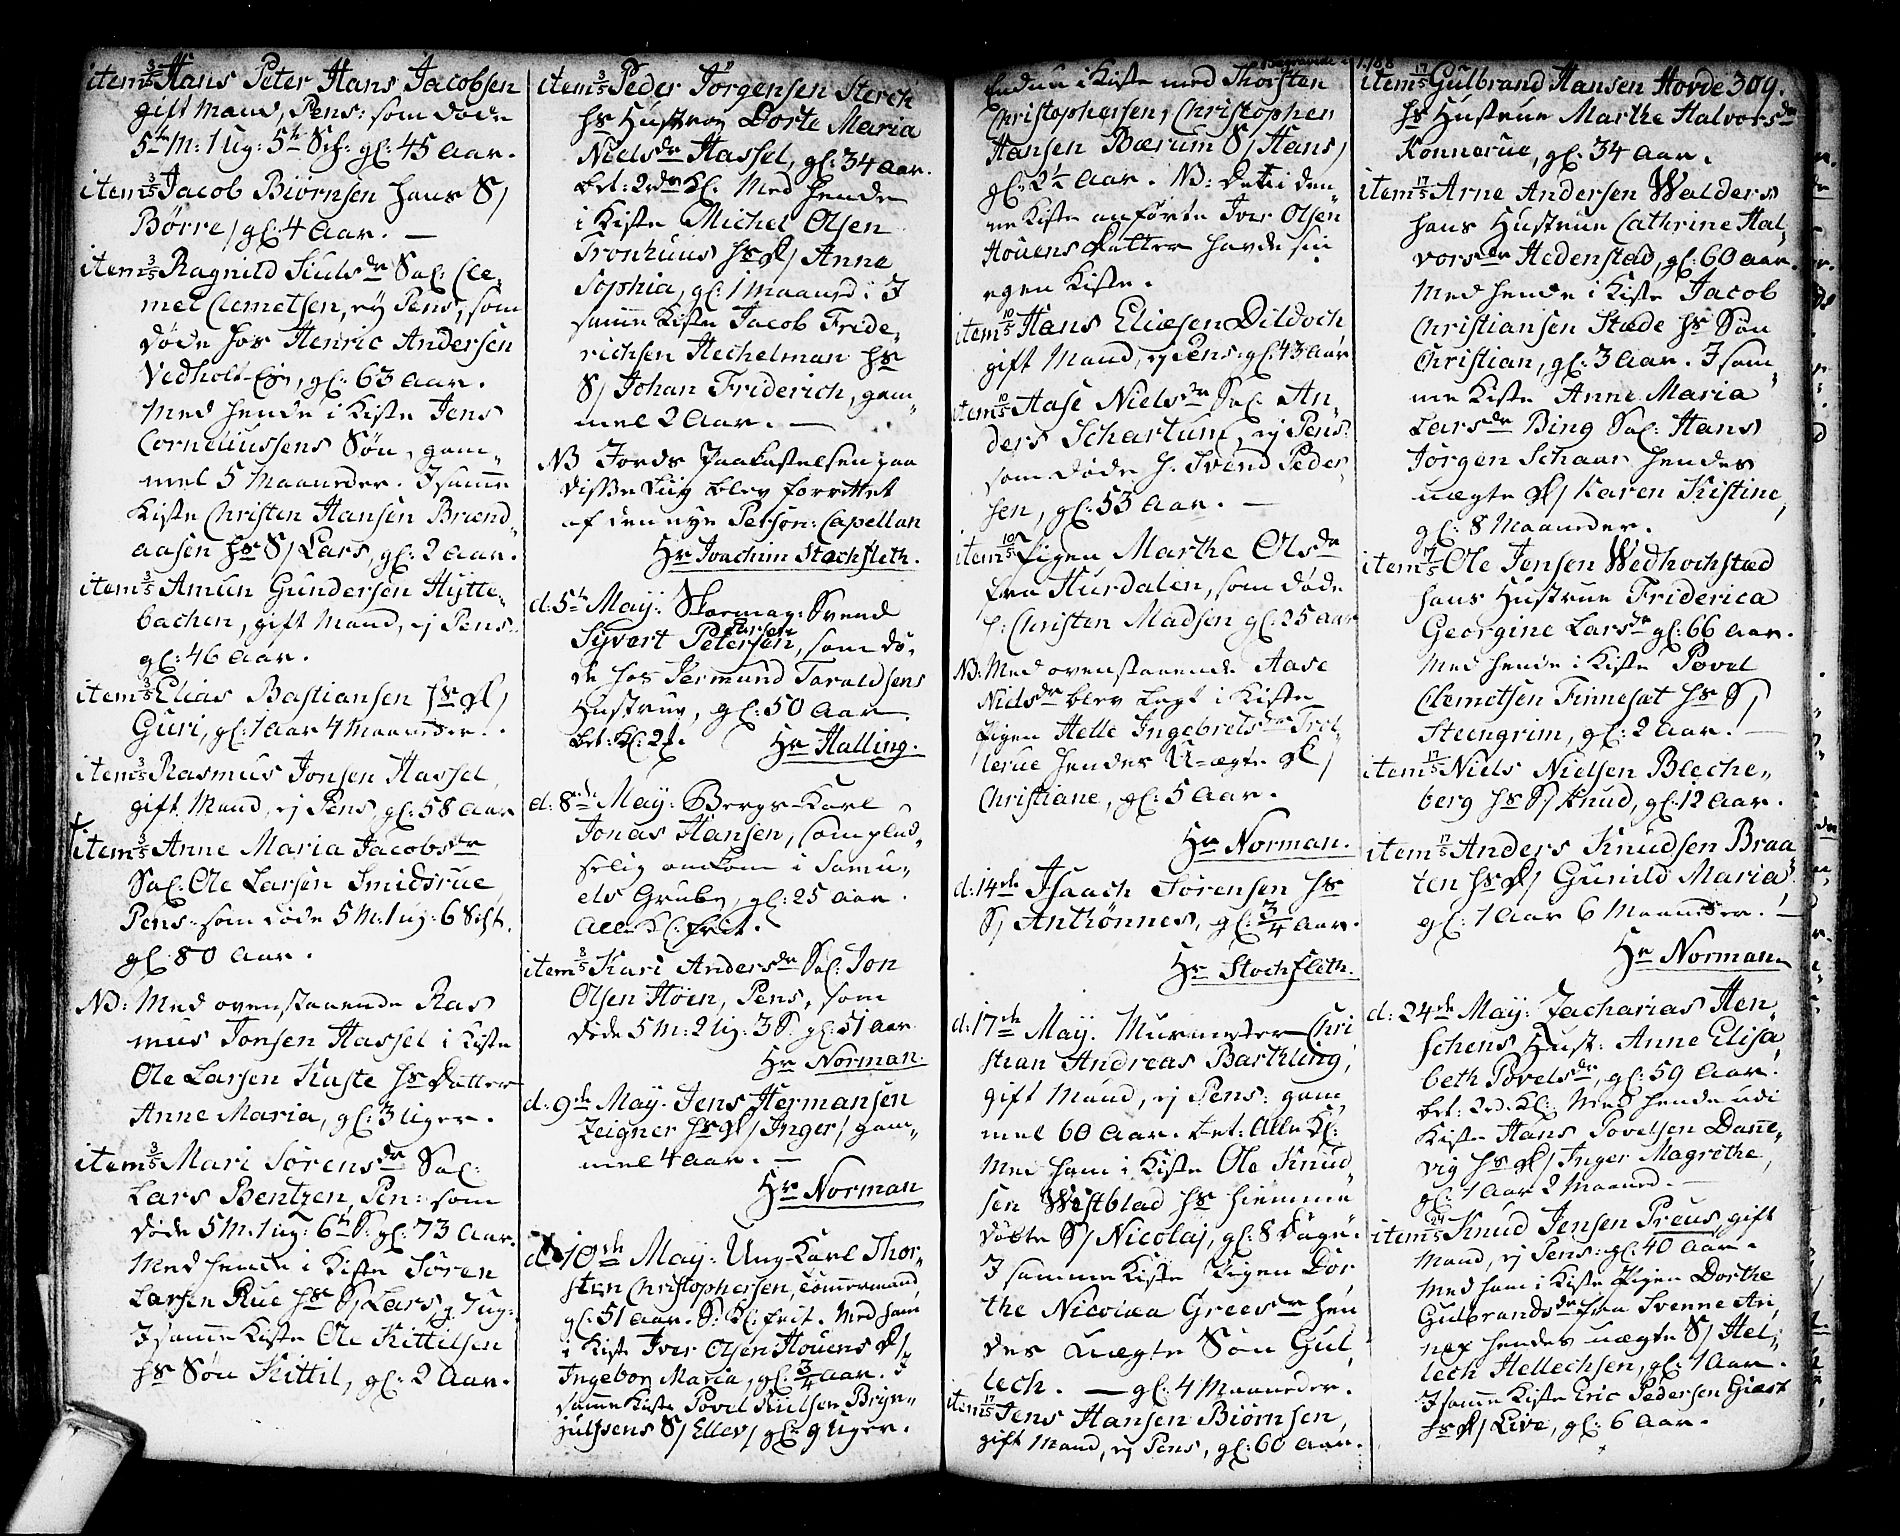 item 3/5 Hans Peter Hans Jacobsen
gift Mand, Pens: som døde
5te M: 1 Ug: 5te Sch: gl: 45 Aar.
item 3/5 Jacob Biørnsen hans S/
Børre/ gl: 4 Aar. —
item 3/5 Ragnild Siulsdr Sal: Cle-
met Clemetsen, ej Pens, som
døde hos Henric Andersen
Vedholt-Eje, gl: 63 Aar.
Med hende i Kiste Jens
Corneliussens Søn, gam-
mel 5 Maaneder. I samme
Kiste Christen Hansen Brænd-
aasen hs S/ Lars, gl: 2 Aar.
item 3/5 Amun Gundersen Hytte-
bachen, gift Mand, ej Pens:
gl: 46 Aar.
item 3/5 Elias Bastiansen hs D/
Guri, gl: 1 Aar 4 Maaneder.
item 3/5 Rasmus Jonsen Hassel
gift Mand, ej Pens, gl: 58 Aar
item 3/5 Anne Maria Jacobsdr
Sal: Ole Larsen Smidsrue
Pens: som døde 5 M: 1 ug: 6 Scht.
gl: 80 Aar.
NB: Med ovenstaaende Ras
mus Jonsen Hassel i Kiste
Ole Larsen Kaste hs Datter
Anne Maria, gl: 3 Uger.
item 3/5 Mari Sørensdr Sal:
Lars Bentzen, Pen: som
døde 5 M: 1 ug: 6te S: gl: 73 Aar.
Med hende i Kiste Søren
Larsen Rue hs S/ Lars, g 7 ug:
I samme Kiste Ole Kittilsen
hs Søn Kittil, gl: 2 Aar.
item 3/5 Peder Jørgensen Sterch
hs Hustrue Dorte Maria
Nielsdr Hassel, gl: 34 Aar.
bet: 2de Kl: Med hende
i Kiste Michel Olsen
Tronhuus hs D/ Anne
Sophia, gl: 1 Maaned: I
samme Kiste Jacob Fride-
richsen Hechelman hs
S/ Johan Friderich, gam-
mel 2 Aar. —
NB Jords Paakastelsen paa
disse Liig blev forrettet
af den nye Person: Capellan
Hr Joachim Stochfleth.
d: 5te May: Svend
Syvert Petersen, som dø-
de hos Vermund Taraldsens
Hustrue, gl: 50 Aar.
bet: Kl: 2 f. Hr Halling.
d: 8de May: Bergs-Karl
Jonas Hansen, som plud-
selig omkom i Samu-
els Grube, gl: 25 Aar.
Alle Kl: frit.
item 8/5 Kari Andersdr Sal: Jon
Olsen Høien, Pens, som
døde 5 M: 2 Ug: 3 S: gl: 51 Aar.
Hr Norman.
d: 9de May. Jens Hermansen
Zeigner hs D/ Inger/ gam-
mel 4 Aar. —
Hr Norman
d: 10de May: Ung-Karl Thor-
sten Christophersen, Tømmermand
gl: 51 Aar. S: Kl: frit. Med ham
i Kiste Iver Olsen Houens D/
Ingebor Maria, gl: 3/4 Aar. I
samme Kiste Povel Nielsen Bryn-
julfsens S/ Ellev/ gl: 9 Uger.
Begravede 1788
Endnu i Kiste med Thorsten
Christophersen, Christopher
Hansen Bærum S/ Hans/
gl: 2 1/2 Aar. NB: Det i den-
ne Kiste anførte Iver Olsen
Houens Datter havde sin
egen Kiste.
item 10/5 Hans Eliæsen Dildoch
gift Mand, ej Pens: gl: 43 Aar
item 10/5 Aase Nielsdr Sal: An-
ders Schartum, ej Pens
som døde h. Svend Peder
sen, gl: 53 Aar. —
item 10/5 Pigen Marthe Olsdr
fra Hurdalen, som døde
h: Christen Madsen gl: 25 Aar
NB: Med ovenstaaende Aase
Nielsdr blev lagt i Kiste
Pigen Helle Ingebretsdr Tril-
lerue hendes U-ægte D/
Christiane, gl: 5 Aar.
Hr Norman.
d: 14de Isaach Sørensen hs
S/ Anthønnes, gl: 3/4 Aar.
Hr Stochfleth.
d: 17de May. Murmester Chri
stian Andreas Barthling,
gift Mand, ej Pens: gam
mel 60 Aar. bet: Alle Kl:
Med ham i Kiste Ole Knud-
sen Westblad hs hiemme
døbte S/ Nicolaj, gl: 8 Dage.
I samme Kiste Pigen Dor
the Nicolaa Greersdr hen
des uægte Søn Gul
lech. — gl: 4 Maaneder.
item 17/5 Jens Hansen Biørnsen,
gift Mand, ej Pens, gl: 60 Aar.
item 17/5 Gulbrand Hansen Hovde 309.
hs Hustrue Marthe Halvorsdr
Konnerue, gl: 34 Aar.
item 17/5 Arne Andersen Walders
hans Hustrue Cathrine Hal-
vorsdr Hedenstad, gl: 60 Aar.
Med hende i Kiste Jacob
Christiansen Stæde hs Søn
Christian, gl: 3 Aar. I sam-
me Kiste Anne Maria
Larsdr Bing Sal: Hans
Jørgen Schaar hendes
uægte D/ Karen Kistine,
gl: 8 Maaneder.
item 17/5 Ole Jensen Wedhochstad
hans Hustrue Friderica
Georgine Larsdr gl: 66 Aar.
Med hende i Kiste Povel
Clemetsen Finnesat hs S/
Steengrim, gl: 2 Aar. —
item 17/5 Niels Nielsen Bleche-
berg hs S/ Knud, gl: 12 Aar.
item 17/5 Anders Knudsen Braa
ten hs D/ Gunild Maria
gl: 1 Aar 6 Maaneder. —
Hr Norman
d: 24de May: Zacharias Hen-
schens Hust: Anne Elisa
beth Povelsdr, gl: 59 Aar.
bet: 2de Kl: Med hende udi
Kiste Hans Povelsen Danne-
vig hs D/ Inger Magrethe,
gl: 1 Aar 2 Maaned. —
item 24/5 Knud Jensen Preus, gift
Mand, ej Pens: gl: 40 Aar.
Med ham i Kiste Pigen Dorthe
Gulbrandsdr fra Svenne An-
nex hendes uægte S/ Hel-
lech Hellechsen, gl: 1 Aar.
I samme Kiste Eric Pedersen Giæst
hs D/ Live, gl: 6 Aar.